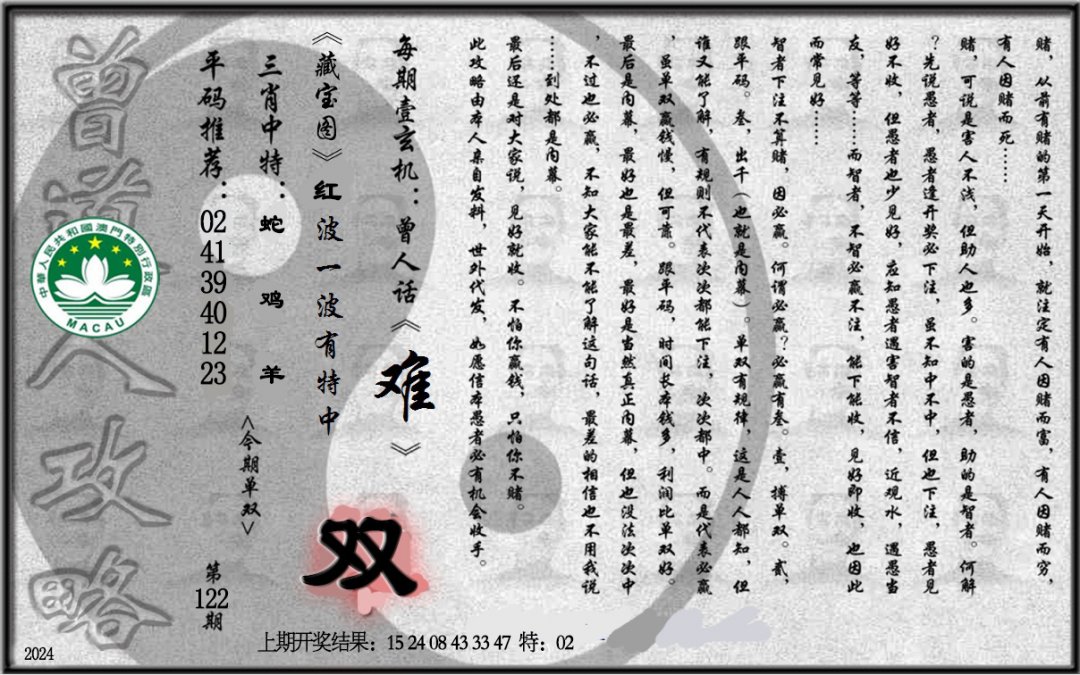 赌，从前有赌的第一天开始，就注定有人因赌而富，有人因赌而穷，
有人因赌而死……
赌，可说是害人不浅，但助人也多。害的是愚者，助的是智者。何解
？先说愚者，愚者逢开奖必下注，虽不知中不中，但也下注，愚者见
好不收，但愚者也少见好，应知愚者遇害智者不信，近观水，遇愚当
友，等等……而智者，不智必赢不注，能下能收，见好即收，也因此
而常见好……
智者下注不算赌，因必赢。何谓必赢？必赢有叁。壹，搏单双。贰，
跟平码。叁，出千（也就是内幕）。单双有规律，这是人人都知，但
谁又能了解，有规则不代表次次都能下注，次次都中。而是代表必赢
，虽单双赢钱慢，但可靠。跟平码，时间长本钱多，利润比单双好。
最后是内幕，最好也是最差，最好是当然真正内幕，但也没法次次中
，不过也必赢，不知大家能不能了解这句话，最差的相信也不用我说
……到处都是内幕。
最后还是对大家说，见好就收。不怕你赢钱，只怕你不赌。
此攻略由本人亲自发料，世外代发，如愿信本愚者必有机会收手。
每期壹玄机：曾人话《难》
《藏宝图》红波一波有特中
双
三肖中特：蛇 鸡 羊
<今期单双>
平码推荐：02 41 39 40 12 23
第122期
曾道人攻略
中華人民共和國澳門特別行政區
MACAU
上期开奖结果：15 24 08 43 33 47 特：02
2024